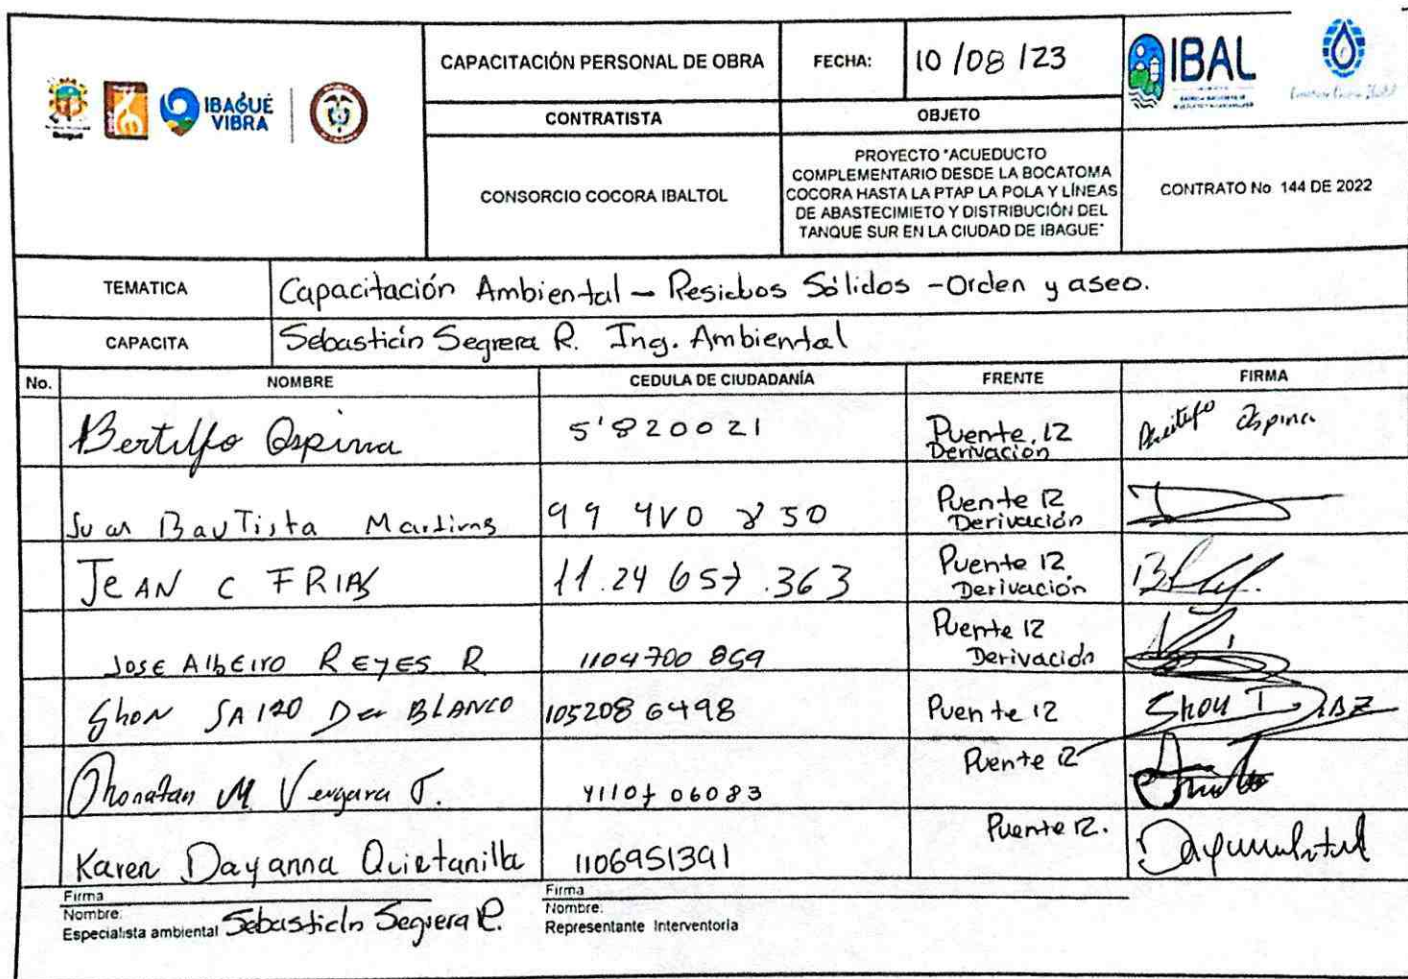 IBAGUÉ
VIBRA
Ibagué
CAPACITACIÓN PERSONAL DE OBRA
FECHA:
10/08/23
IBAL
CONTRATISTA
OBJETO
CONSORCIO COCORA IBALTOL
PROYECTO "ACUEDUCTO
COMPLEMENTARIO DESDE LA BOCATOMA
COCORA HASTA LA PTAP LA POLA Y LÍNEAS
DE ABASTECIMIETO Y DISTRIBUCIÓN DEL
TANQUE SUR EN LA CIUDAD DE IBAGUE"
CONTRATO No 144 DE 2022
TEMATICA
Capacitación Ambiental - Residuos Sólidos - Orden y aseo.
CAPACITA
Sebastián Segrera R. Ing. Ambiental
No. NOMBRE CEDULA DE CIUDADANÍA FRENTE FIRMA
Bertilfo Ospina 5'820021 Puente 12 Ospina
Derivación
Bautista 850 Puente 12
Derivación
JEAN C FRIAS 11.24 657.363 Puente 12
Derivación
JOSE AlbEiro REYES R 1104700 859 Puente 12
Derivación
BLANCO 105208 6498 Puente 12
Jhonatan M. Vergara J. 06083 Puente 12
Karen Dayanna Quintanilla 1106951391 Puente 12.
Firma
Nombre:
Especialista ambiental Sebastián Segrera R.
Firma
Nombre:
Representante Interventoria